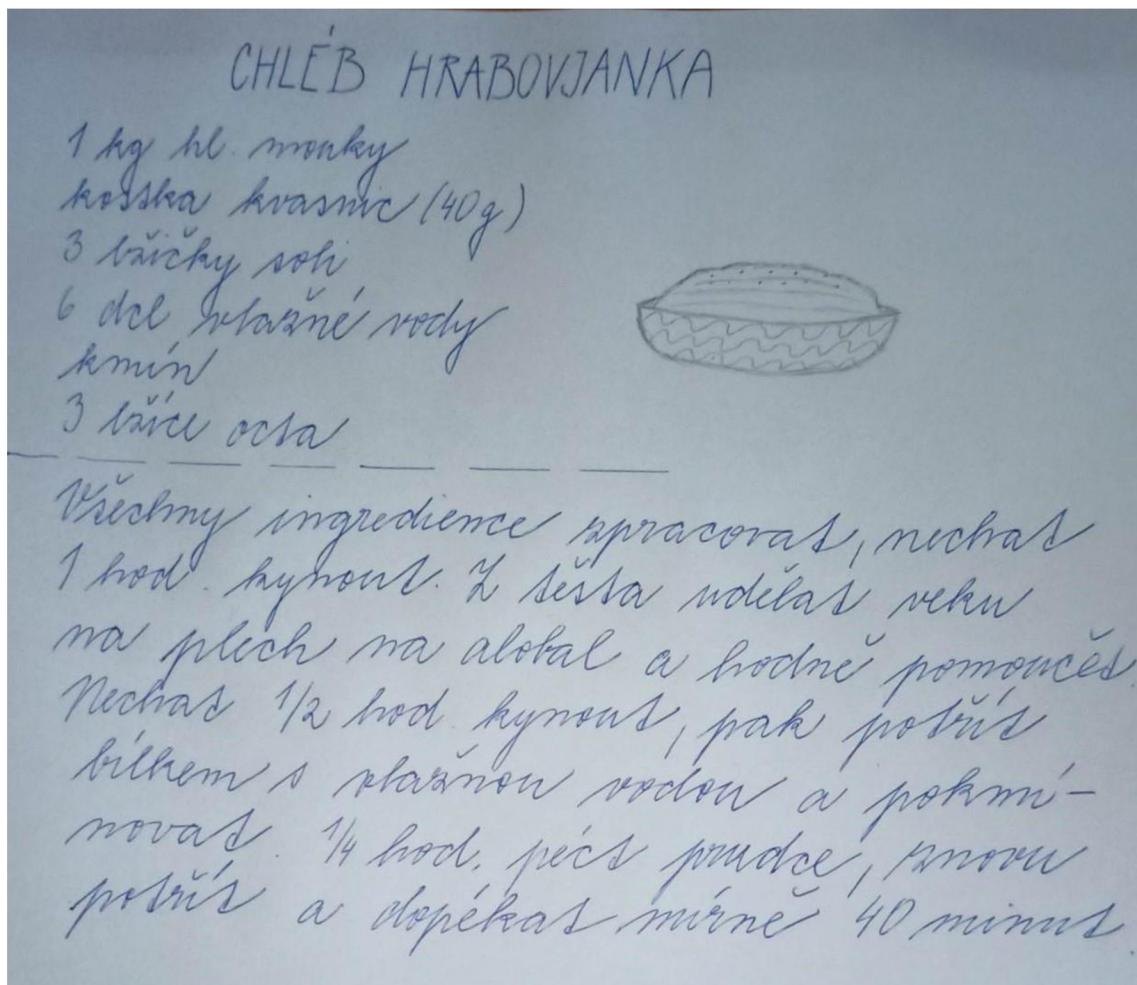 CHLÉB HRABOVJANKA
1 kg hl. mouky
kostka kvasnic (40g)
3 lžičky soli
6 dcl vlažné vody
kmín
3 lžíce octa
Všechny ingredience zpracovat, nechat
1 hod. kynout. Z těsta udělat veku
na plech na alobal a hodně pomoučit.
Nechat 1/2 hod. kynout, pak potřít
bílkem s vlažnou vodou a pokmí-
novat. 1/4 hod. péct prudce, znovu
potřít a dopékat mírně 40 minut.